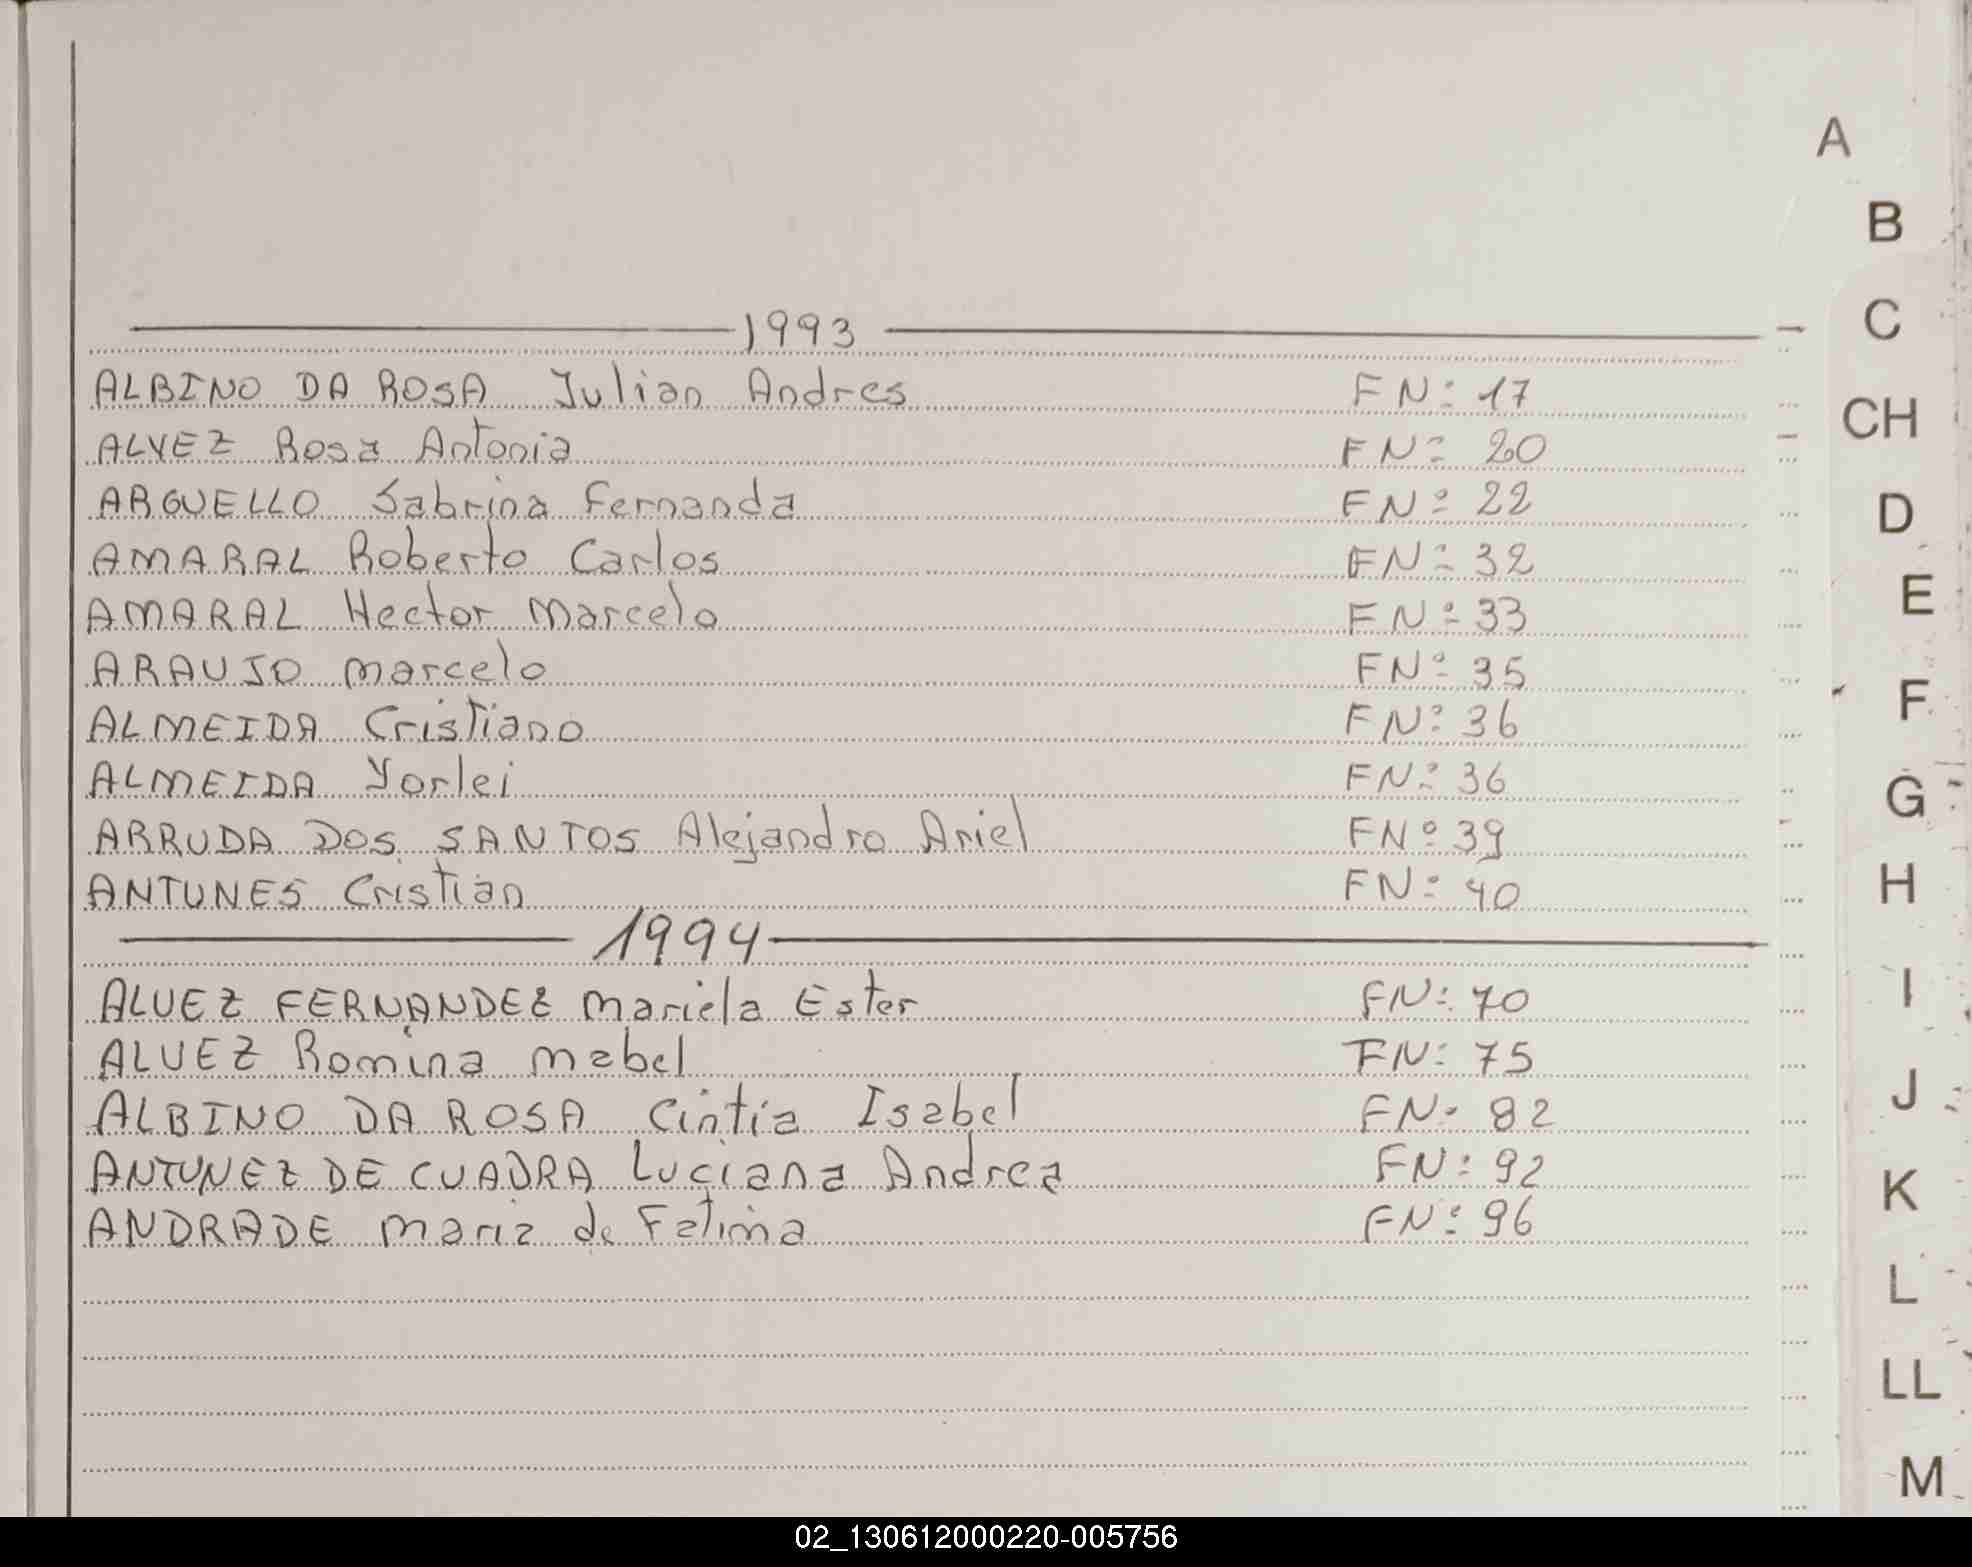 1993
ALBINO DA ROSA Julian Andres FNº 17
ALVEZ Rosa Antonia FNº 20
ARGUELLO Sabrina Fernanda FNº 22
AMARAL Roberto Carlos FNº 32
AMARAL Hector Marcelo FNº 33
ARAUJO Marcelo FNº 35
ALMEIDA Cristiano FNº 36
ALMEIDA Yorlei FNº 36
ARRUDA DOS SANTOS Alejandro Ariel FNº 39
ANTUNES Cristian FNº 40
1994
ALVEZ FERNANDEZ Mariela Ester FNº 70
ALVEZ Romina Mabel FNº 75
ALBINO DA ROSA Cintia Isabel FNº 82
ANTUNEZ DE CUADRA Luciana Andrea FNº 92
ANDRADE Maria de Fatima FNº 96
A
B
C
CH
D
E
F
G
H
I
J
K
L
LL
M
02_130612000220-005756